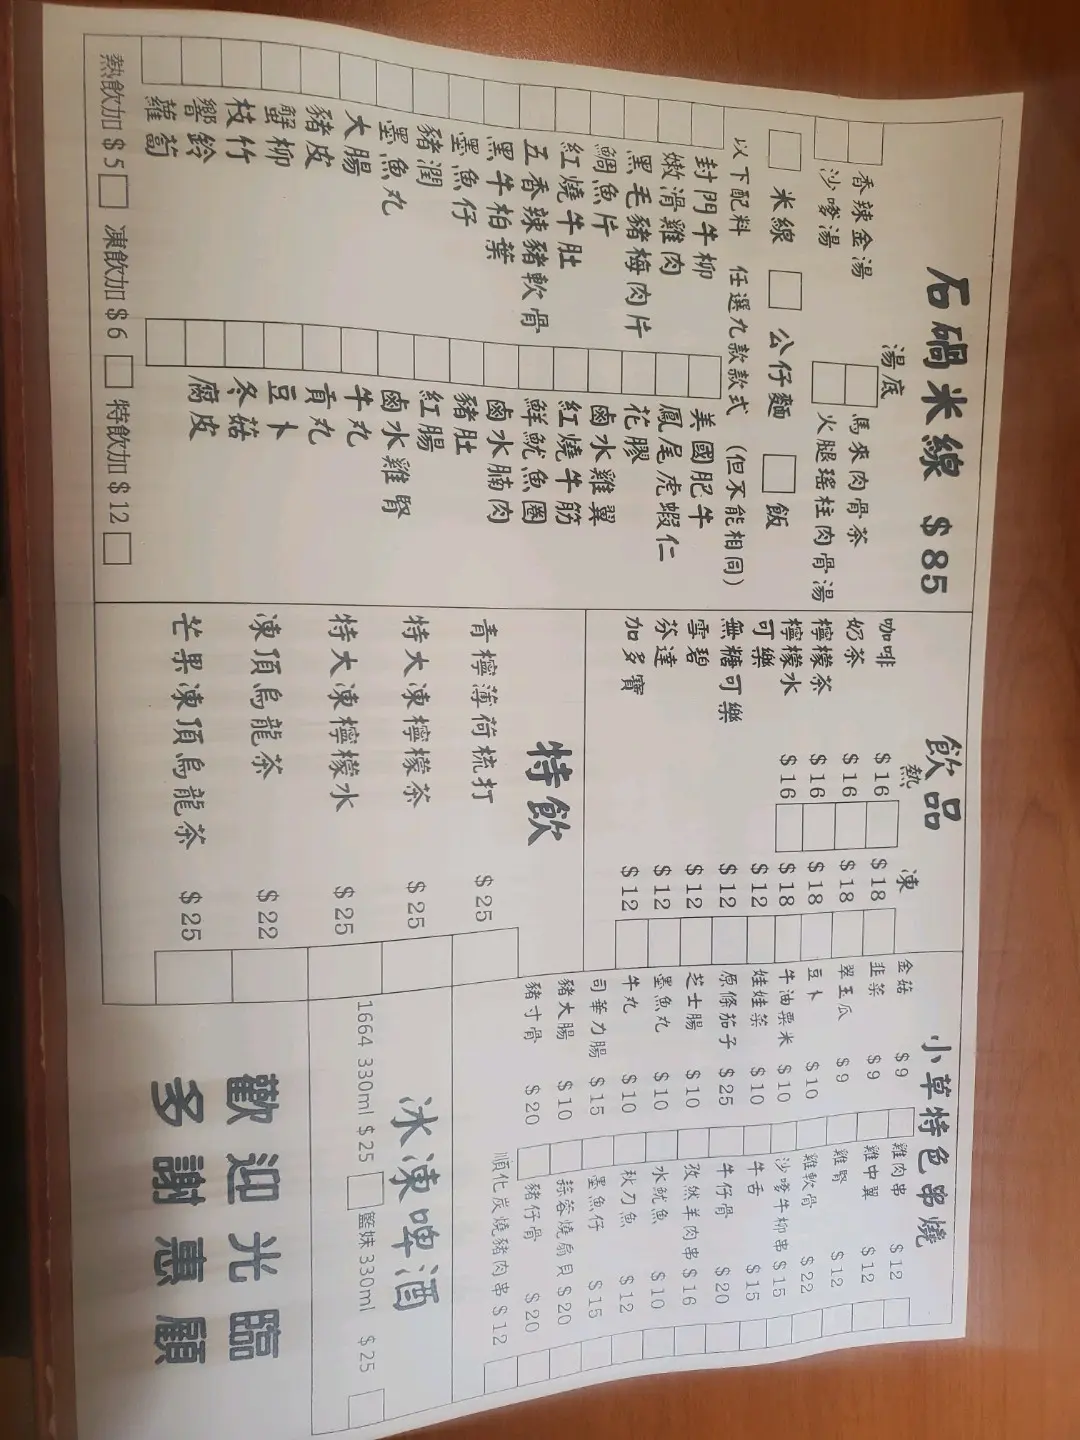 石碢米線 $85
湯底
香辣金湯 馬來肉骨茶
沙嗲湯 火腿瑤柱肉骨湯
米線 公仔麵 飯
以下配料 任選九款款式 (但不能相同)
封門牛柳 美國肥牛
嫩滑雞肉 鳳尾虎蝦仁
黑毛豬梅肉片 花膠
鯛魚片 鹵水雞翼
紅燒牛肚 紅燒牛筋
五香辣豬軟骨 鮮魷魚圈
黑牛柏葉 鹵水腩肉
墨魚仔 豬肚
豬潤 紅腸
墨魚丸 鹵水雞腎
大腸 牛丸
豬皮 貢丸
蟹柳 豆卜
枝竹 冬菇
響鈴 腐皮
蘿蔔
熱飲加$5 凍飲加$6 特飲加$12
飲品
熱 凍
咖啡 $16 $18
奶茶 $16 $18
檸檬茶 $16 $18
檸檬水 $16 $18
可樂 $12
無糖可樂 $12
雪碧 $12
芬達 $12
加多寶 $12
特飲
青檸薄荷梳打 $25
特大凍檸檬茶 $25
特大凍檸檬水 $25
凍頂烏龍茶 $22
芒果凍頂烏龍茶 $25
小草特色串燒
金菇 $9 雞肉串 $12
韭菜 $9 雞中翼 $12
翠玉瓜 $9 雞腎 $12
豆卜 $10 雞軟骨 $22
牛油粟米 $10 沙嗲牛柳串 $15
娃娃菜 $10 牛舌 $15
原條茄子 $25 牛仔骨 $20
芝士腸 $10 孜然羊肉串 $16
墨魚丸 $10 水魷魚 $10
牛丸 $10 秋刀魚 $12
司華力腸 $15 墨魚仔 $15
豬大腸 $10 蒜蓉燒扇貝 $20
豬寸骨 $20 豬仔骨 $20
順化炭燒豬肉串 $12
冰凍啤酒
1664 330ml $25 籃妹 330ml $25
歡迎光臨
多謝惠顧